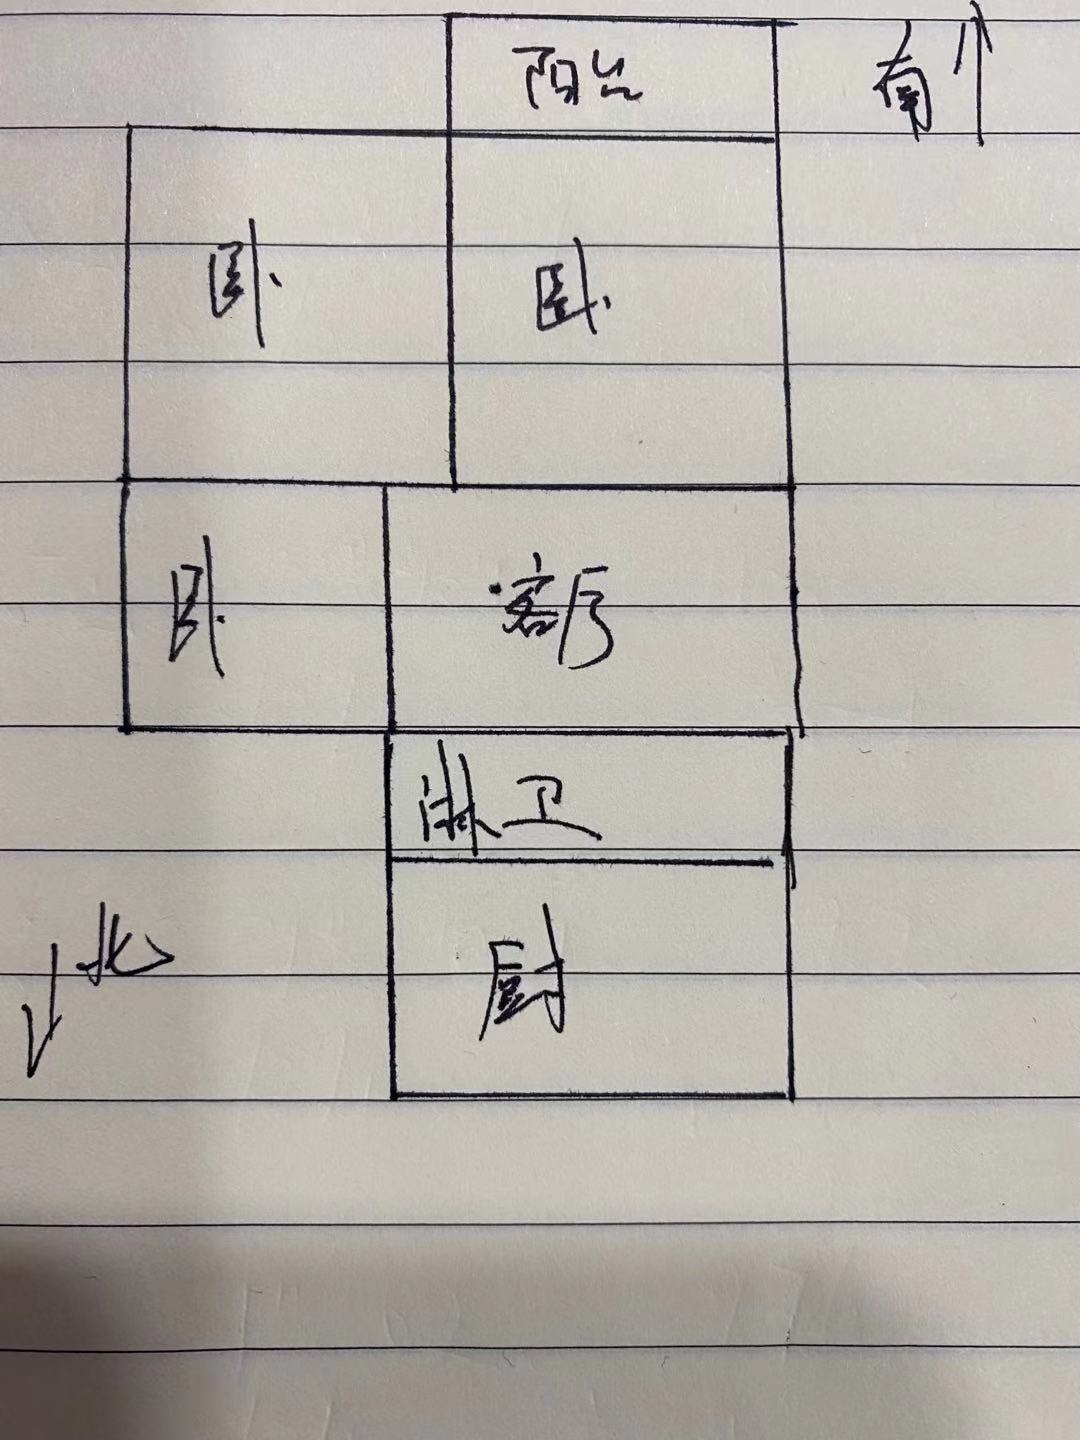 阳台
南
卧
卧
卧
客厅
淋卫
厨
北